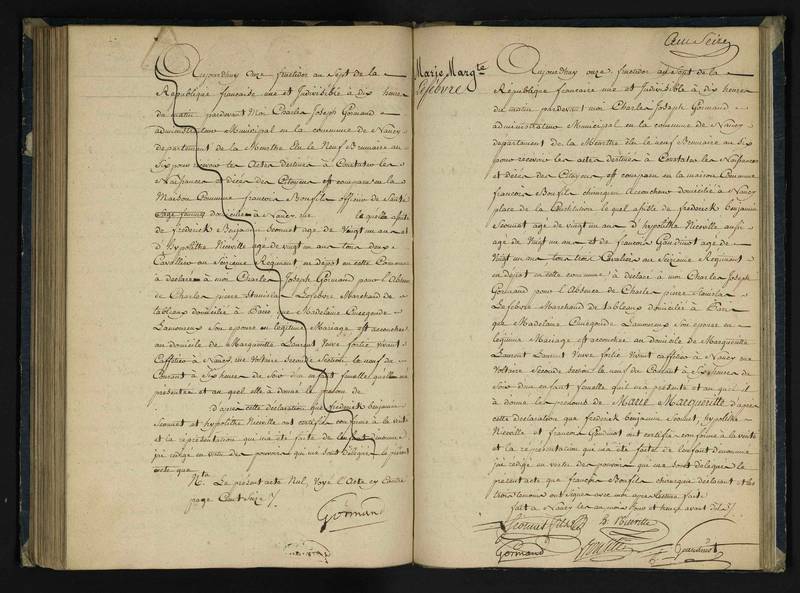 Aujourdhuy onze fructidor an Sept de la
République française une et Indivisible à dix heures
du matin pardevant Moi Charles Joseph Gormand
administrateur Municipal en la commune de Nancy
departement de la Meurthe Elu le Neuf Brumaire an
Six pour recevoir les Actes destinés à Constater les
Naissances et décès des Citoyens est comparu en la
Maison Commune francois Bonfils officier de Santé
domicilié à Nancy rue lequel assisté
de frederick Benjamin Scouuet agé de Vingt un ans et
d'Hypolithe Nieville agé de vingt un ans tous deux
Cavaliers au Seizieme Regiment en depot en cette Commune
a declaré a moi Charles Joseph Gormand pour l'Absence
de Charles pierre Stanislas Lefebvre Marchand de
tableaux domicilié à Paris que Madelaine Cunegonde
Lamoureux son epouse en legitime Mariage est accouchée
au domicile de Margueritte Laurent Veuve fortié vivant
Caffetier à Nancy rue Voltaire Seconde Section le neuf du
Courant à Six heures de Soir d'un enfant femelle qu'il m'a
présentée et auquel elle a donné le prenom de
d'après cette déclaration que frederick benjamin
Scouuet et hypolithe Nieville ont certifié conforme à la verité
et la réprésentation qui m'a été faite de l'enfant denommé
j'ai rédigé en vertu des pouvoirs qui me sont délégués le présent
acte que
Nta. Le présent acte Nul, Voyé l'Acte cy Contre
page Cent Seize
Gormand
Cent Seize
Marie Margte
Lefebvre
Aujourdhuy onze fructidor an Sept de la
République francaise une et Indivisible à dix heures
du matin pardevant moi Charles Joseph Gormand
administrateur Municipal en la commune de Nancy
departement de la Meurthe Elu le neuf Brumaire an
Six pour recevoir les actes destinés à Constater les Naissances
et décès des Citoyens est comparu en la maison Commune
francois Bonfils chirurgien Accoucheur domicilié à Nancy
place de la Constitution lequel assisté de frederick Benjamin
Scouuet agé de vingt un ans d'hypolithe Nieville aussi
agé de Vingt un ans et de francois Gaudinot agé de
Vingt un ans tous trois Cavaliers au Seizieme Regiment
en depot en cette commune a déclaré à moi Charles Joseph
Gormand pour l'Absence de Charles pierre Stanislas
Lefebvre Marchand de tableaux domicilié à Paris
que Madelaine Cunegonde Lamoureux son epouse en
legitime Mariage est accouchée au domicile de Margueritte
Laurent Veuve fortié Vivant caffetier à Nancy rue
Voltaire Seconde Section le neuf du Courant à Six heures de
Soir d'un enfant femelle qu'il m'a présenté et auquel il
a donné les prenoms de Marie Marguerite d'après
cette déclaration que frederick benjamin Scouuet, hypolithe
Nieville et francois Gaudinot ont certifié conforme à la verité
et la réprésentation qui m'a été faite de l'enfant denommé
j'ai rédigé en vertu des pouvoirs qui me sont délégués le
présent acte que françois Bonfils chirurgien déclarant et les
trois temoins ont signés avec moi après lecture faite
fait à Nancy les an, mois Jour et heures avant dits
h. Nieville
Gormand
Bonfils
f. Gaudinot